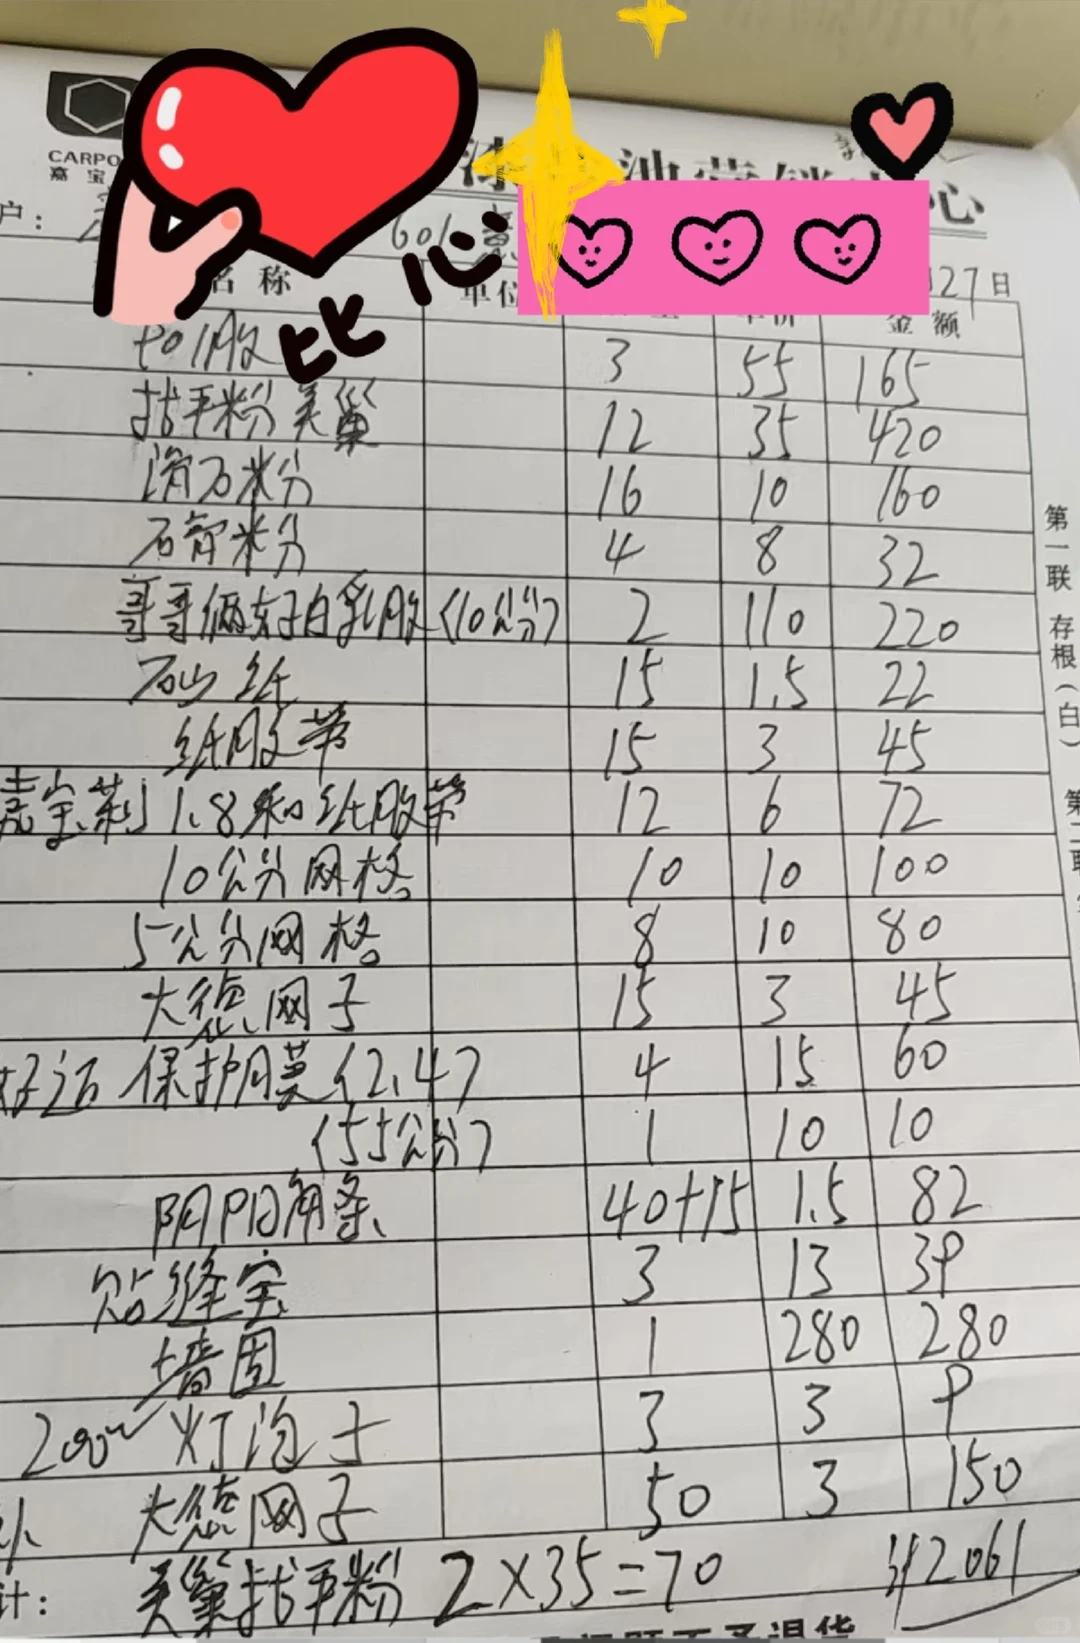 CARPO
嘉宝
心
户： 601
27日
名称 单位 金额
比心
801胶 3 55 165
找平粉 美巢 12 35 420
滑石粉 16 10 160
石膏粉 4 8 32
哥哥俩好白乳胶(10公分) 2 110 220
砂纸 15 1.5 22
纸胶带 15 3 45
嘉宝莉1.8和纸胶带 12 6 72
10公分网格 10 10 100
5公分网格 8 10 80
大德网子 15 3 45
好运 保护膜(2.4) 4 15 60
(55公分) 1 10 10
阴阳角条 40+15 1.5 82
贴缝宝 3 13 39
墙固 1 280 280
200w 灯泡子 3 3 9
大德网子 50 3 150
计： 美巢找平粉 2×35=70 计2061
不予退货
第一联 存根（白）
第二联